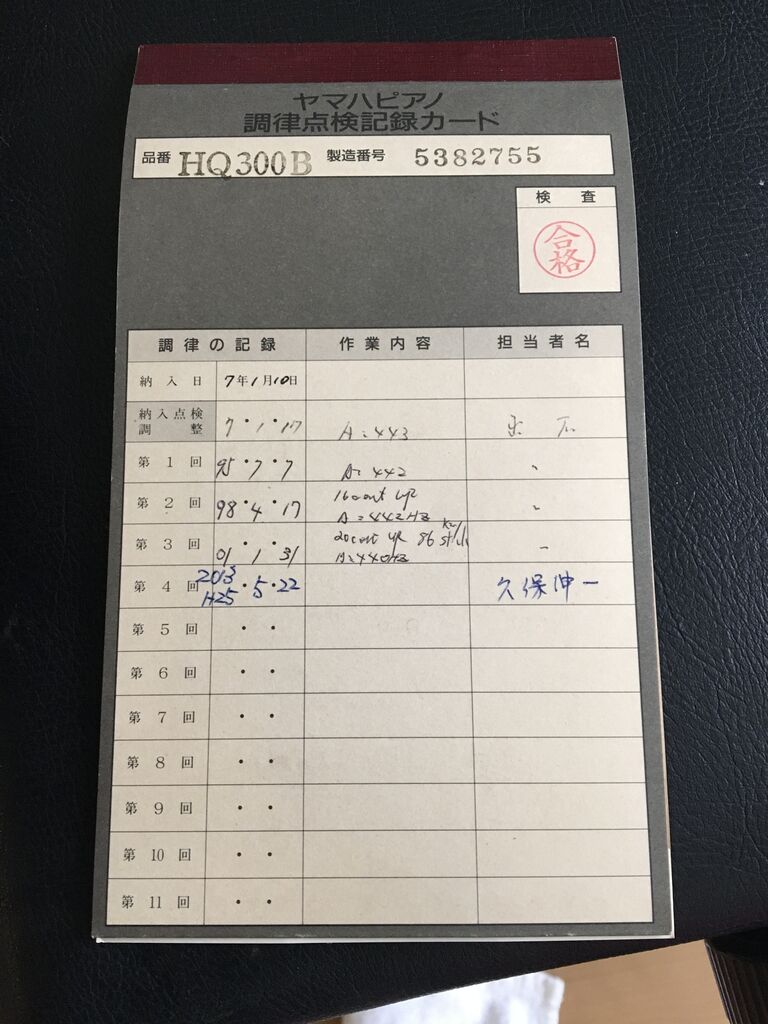 ヤマハピアノ
調律点検記録カード
品番 HQ300B 製造番号 5382755
検査
合格
調律の記録 作業内容 担当者名
納入日 7年1月10日
納入点検調整 7・1・17 A=443
第1回 95・7・7 A=442 〃
第2回 98・4・17 16cent up A=442HZ 〃
第3回 01・1・31 20cent up A=440HZ 〃
第4回 2013 H25・5・22 久保伸一
第5回 ・・
第6回 ・・
第7回 ・・
第8回 ・・
第9回 ・・
第10回 ・・
第11回 ・・